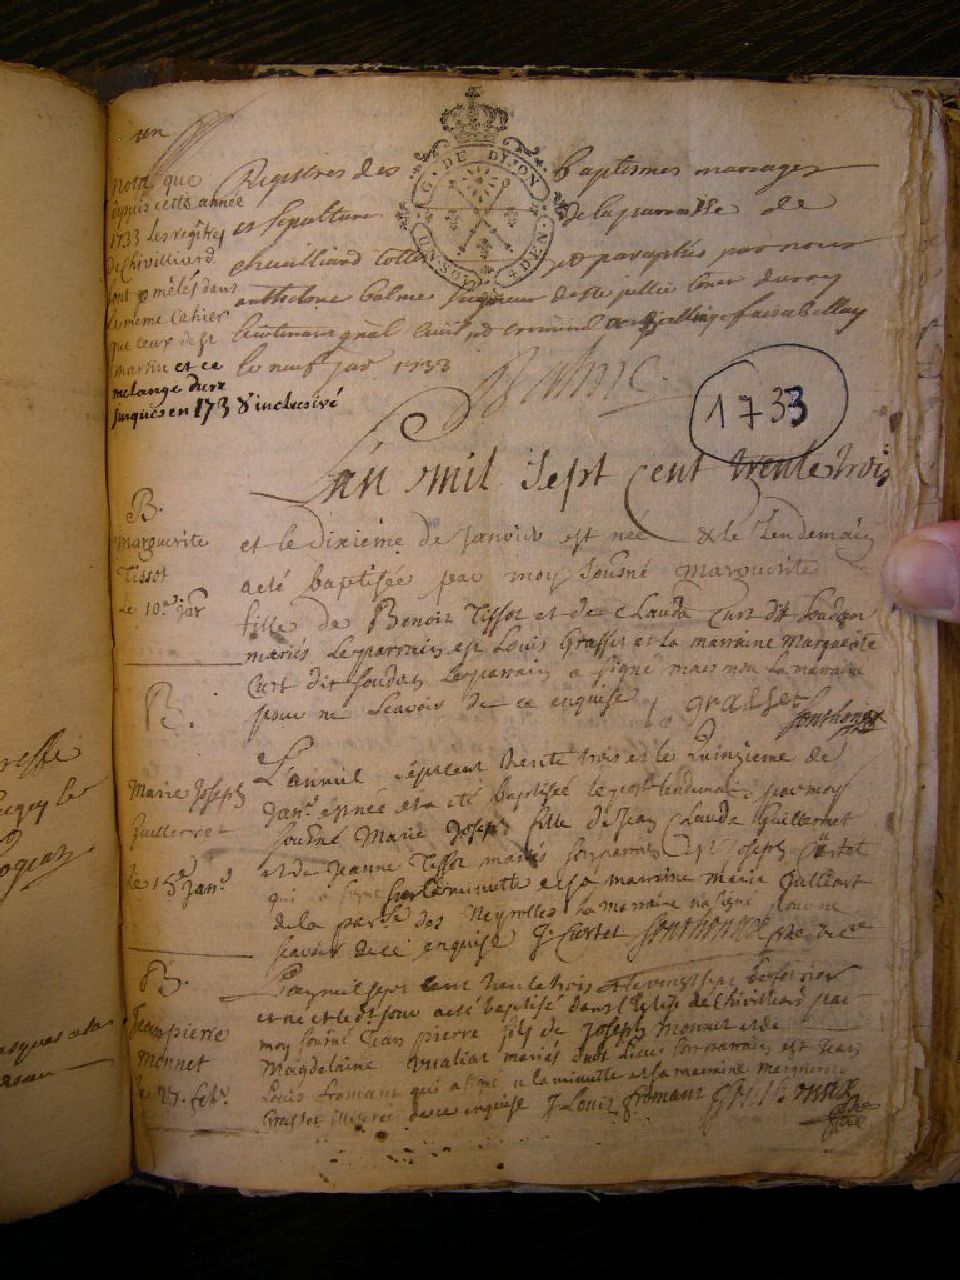 un
nota que
depuis cette année
1733 les regîtres
de Chivilliard
sont mélés dans
le meme Cahier
que ceux de st
martin et ce
melange dure
jusques en 1738 inclusivé
G. DE DIJON
Registres des baptesmes mariages
et sepulture de la parroisse de
chevilliard cotté et paraphés par nous
anthelme balme
lieutenant gnal civil et criminel au bailliage
le neuf janr 1733
Balme
1733
L'an mil sept cent trente trois
B.
Marguerite
Tissot
le 10e janr
et le dixieme de Janvier est née & le lendemain
a eté baptisée par moy sousné Marguerite
fille de Benoit Tissot et de Clauda Curt dit
mariés le parrain est Louis Grasset et la marraine Marguerite
Curt dit le parrain a signé mais non la marraine
pour ne scavoir de ce enquise grasset
Southonax
B.
Marie Joseph
Guillermet
le 15e janr
L'an mil sept cent trente trois et le quinzieme de
Janr est née et a eté baptisée le lendemain par moy
sousné Marie Joseph fille de Jean Claude Guillermet
et de Jeanne Tissot mariés son parrain est Joseph
qui a signé sur la minutte et sa marraine marie
de la parse des Neyrolles la marraine na signé pour ne
scavoir de ce enquise J. Southonax
B.
Jean pierre
monnet
le 27. febr.
L'an mil sept cent trente trois et le vingt sept de fevrier
est né et le dt jour a eté baptisé dans l'eglise de Chivilliard par
moy sousné Jean pierre fils de Joseph Monnet et de
Magdelaine mariés dudt lieu son parrain est Jean
Louis fromant qui a signé a la minutte et sa marraine marguerite
Grasset illiterée de ce enquise J Louis fromant Southonax